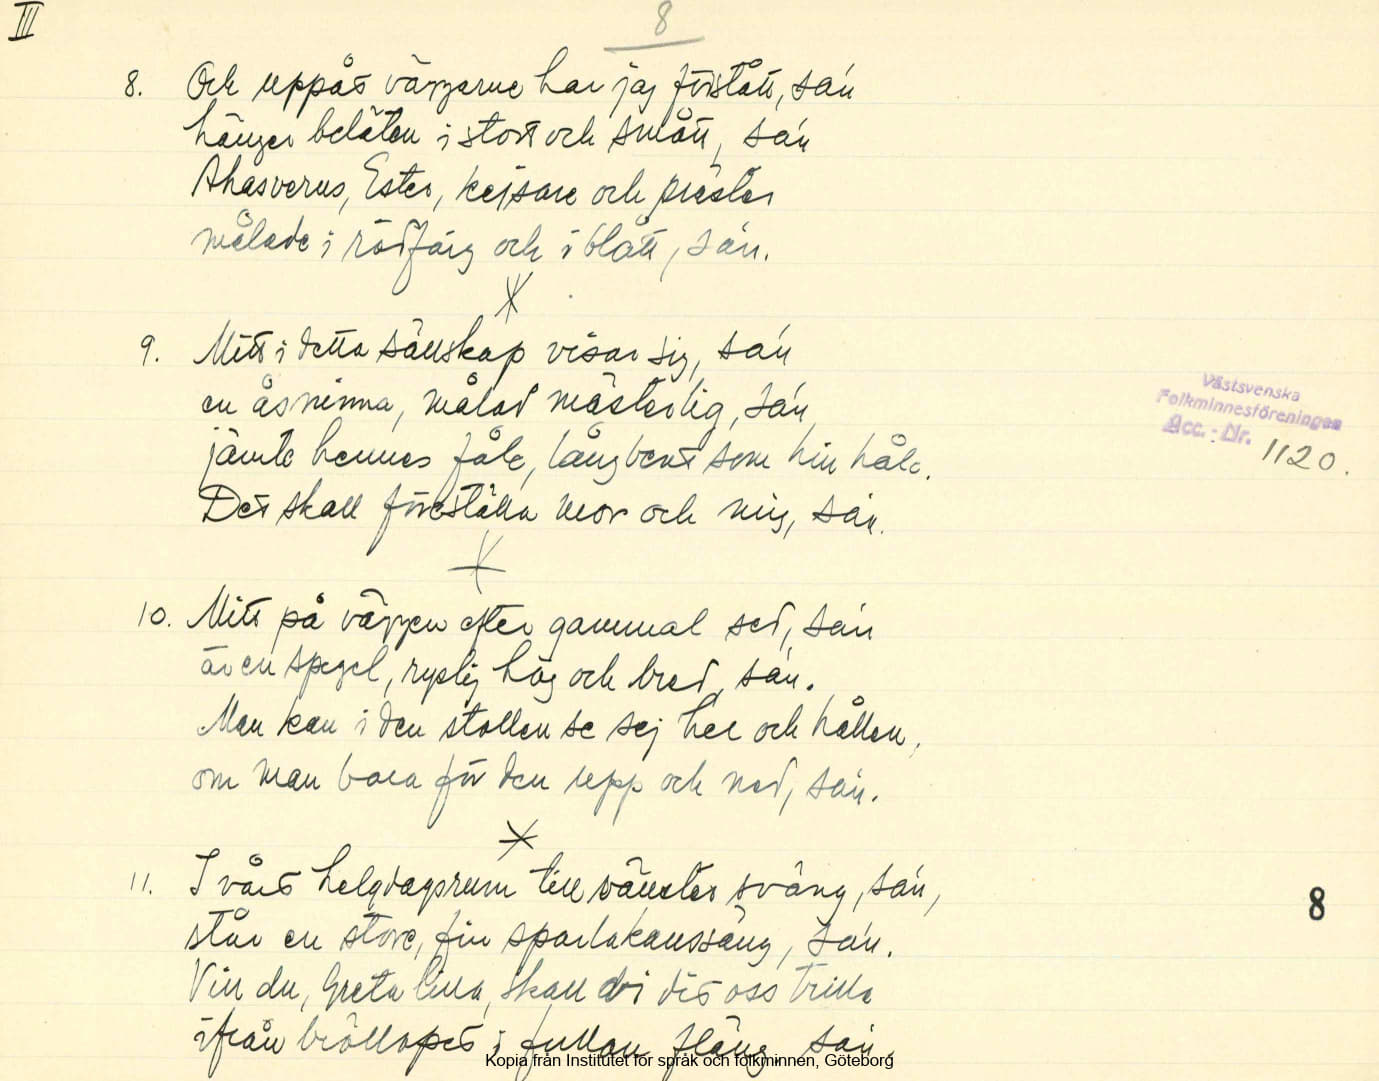 III
8
8. Och uppås väggarne har jag förstått, sán
hänger beläten i stort och smått, sán
Ahasverus, Ester, kejsare och präster
målade i rödfärg och i blått, sán.
9. Mitt i detta sällskap visar sig, sán
en åsninna, målad mästerlig, sán,
jämte hennes fåle, långbent som hin håle.
Det skall föreställa mor och mig, sán.
Västsvenska
Folkminnesföreningen
Acc.-Nr. 1120.
10. Mitt på väggen efter gammal sed, sán
är en spegel, ryslig hög och bred, sán.
Man kan i den stollen se sej hel och hållen,
om man bara för den upp och ned, sán.
11. I vårt helgdagsrum till vänster sväng, sán,
står en store, fin sparlakanssäng, sán.
Vill du, Greta lilla, skall vi dit oss trilla
ifrån bröllopet i fullan fläng sán.
8
Kopia från Institutet för språk och folkminnen, Göteborg